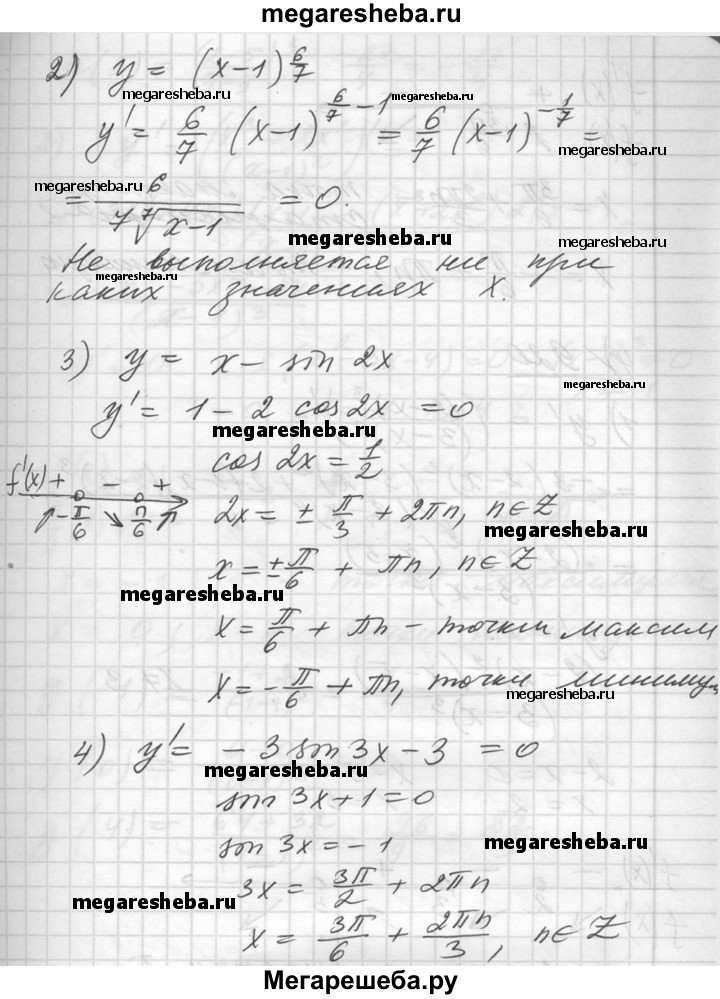 megaresheba.ru
2) y = (x-1)^{6/7}
megaresheba.ru megaresheba.ru
y' = 6/7 (x-1)^{6/7 - 1} = 6/7 (x-1)^{-1/7} =
megaresheba.ru
megaresheba.ru
= 6/(7 ⁷√(x-1)) = 0.
megaresheba.ru
Не выполняется ни при
megaresheba.ru
каких значениях x.
3) y = x - sin 2x
megaresheba.ru
y' = 1 - 2 cos 2x = 0
megaresheba.ru
cos 2x = 1/2
f'(x) + - +
↗ -π/6 ↘ π/6 ↗
2x = ± π/3 + 2πn, n∈Z
x = ± π/6 + πn, n∈Z
megaresheba.ru
x = π/6 + πn - точки максим
x = -π/6 + πn, точки миниму
megaresheba.ru
4) y' = -3 sin 3x - 3 = 0
megaresheba.ru
sin 3x + 1 = 0
sin 3x = -1
megaresheba.ru
3x = 3π/2 + 2πn
megaresheba.ru
x = 3π/6 + 2πn/3, n∈Z
Мегарешеба.ру